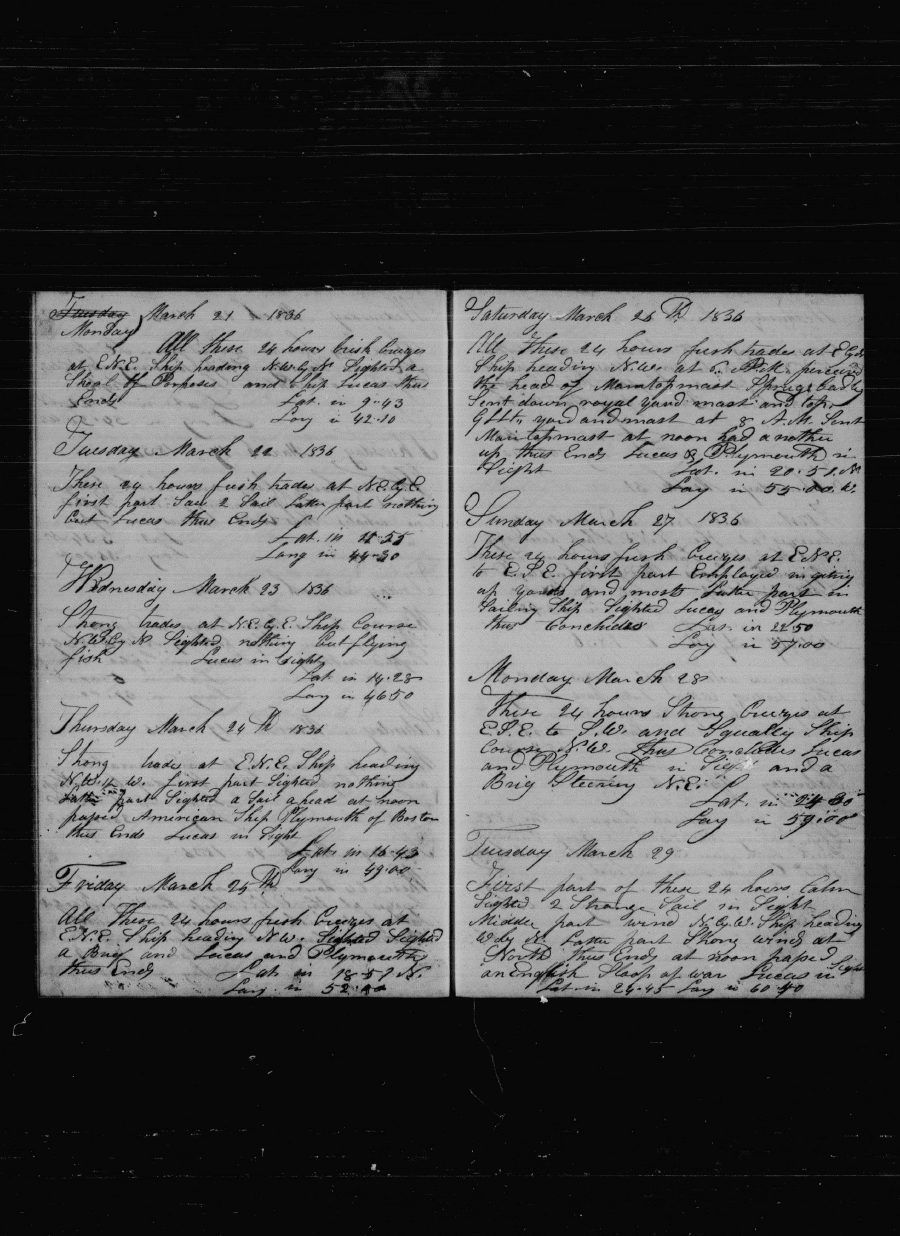 Tuesday March 21 1836
Monday)
All these 24 hours brisk breezes
at E.N.E. Ship heading N.W.byN Sighted a
Shoal of Porposes and Ship Lucas thus
Ends Lat. in 9-43
Long in 42-10
Tuesday March 22 1836
These 24 hours fresh trades at N.E.by E
first part Saw 2 Sail Latter part nothing
but Lucas thus Ends
Lat. in
Long in 44-30
Wednesday March 23 1836
Strong trades at N.E.by.E. Ship Course
N.W.by N Sighted nothing but flying
fish Lucas in Sight
Lat in 14-28
Long in 46 50
Thursday March 24th 1836
Strong trades at E.N.E. Ship heading
W. first part Sighted nothing
Latter part Sighted a Sail ahead at noon
passed American Ship Plymouth of Boston
thus Ends Lucas in Sight
Lat. in 16-43
Long in 49-00
Friday March 25th
All These 24 hours fresh breezes at
E.N.E. Ship heading N.W. Sighted Sighted
a Brig and Lucas and Plymouth
thus Ends Lat. in 18-57 N.
Long. in 52-
Saturday March 26Th 1836
All These 24 hours fresh trades at
Ship heading N.W. at 6 P.M. perceived
the head of Maintopmast Sprung badly
Sent down royal yard mast and top
yard and mast at 8 A.M. Sent
Maintopmast at noon had another
up thus Ends Lucas & Plymouth in
Sight Lat. in 20-51.N
Long in 55-00.W.
Sunday March 27 1836
These 24 hours fresh breezes at E.N.E.
to E.S.E. first part Employed in geting
up yards and masts Latter part in
Sailing Ship Sighted Lucas and Plymouth
thus Concludes Lat. in 22-50
Long in 57-00
Monday March 28
These 24 hours Strong breezes at
E.S.E. to S.W. and Squally Ship
Course N.W. thus Concludes Lucas
and Plymouth in Sight and a
Brig Steering N.E.
Lat. in 24 30
Long in 59-00
Tuesday March 29
First part of these 24 hours Calm
Sighted 2 Strange Sail in Sight
Middle part wind N.by.W. Ship heading
W.by N. Latter part Strong wind at
North thus Ends at noon passed
an English Sloop of war Lucas in Sight
Lat. in 24-45 Long in 60 40